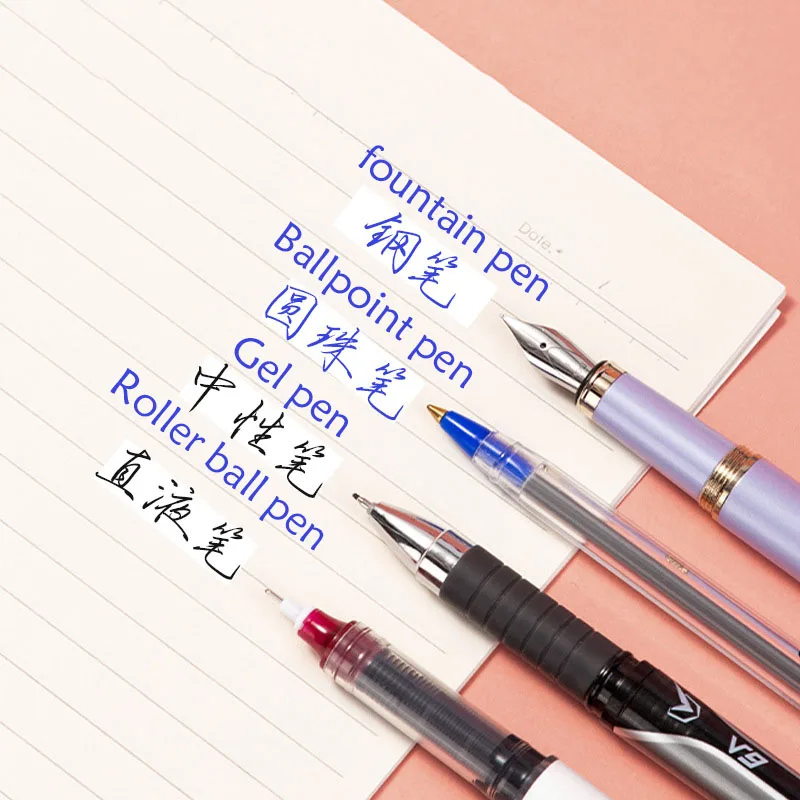 fountain pen
钢笔
Date.
Ballpoint pen
圆珠笔
Gel pen
中性笔
Roller ball pen
直液笔
V9